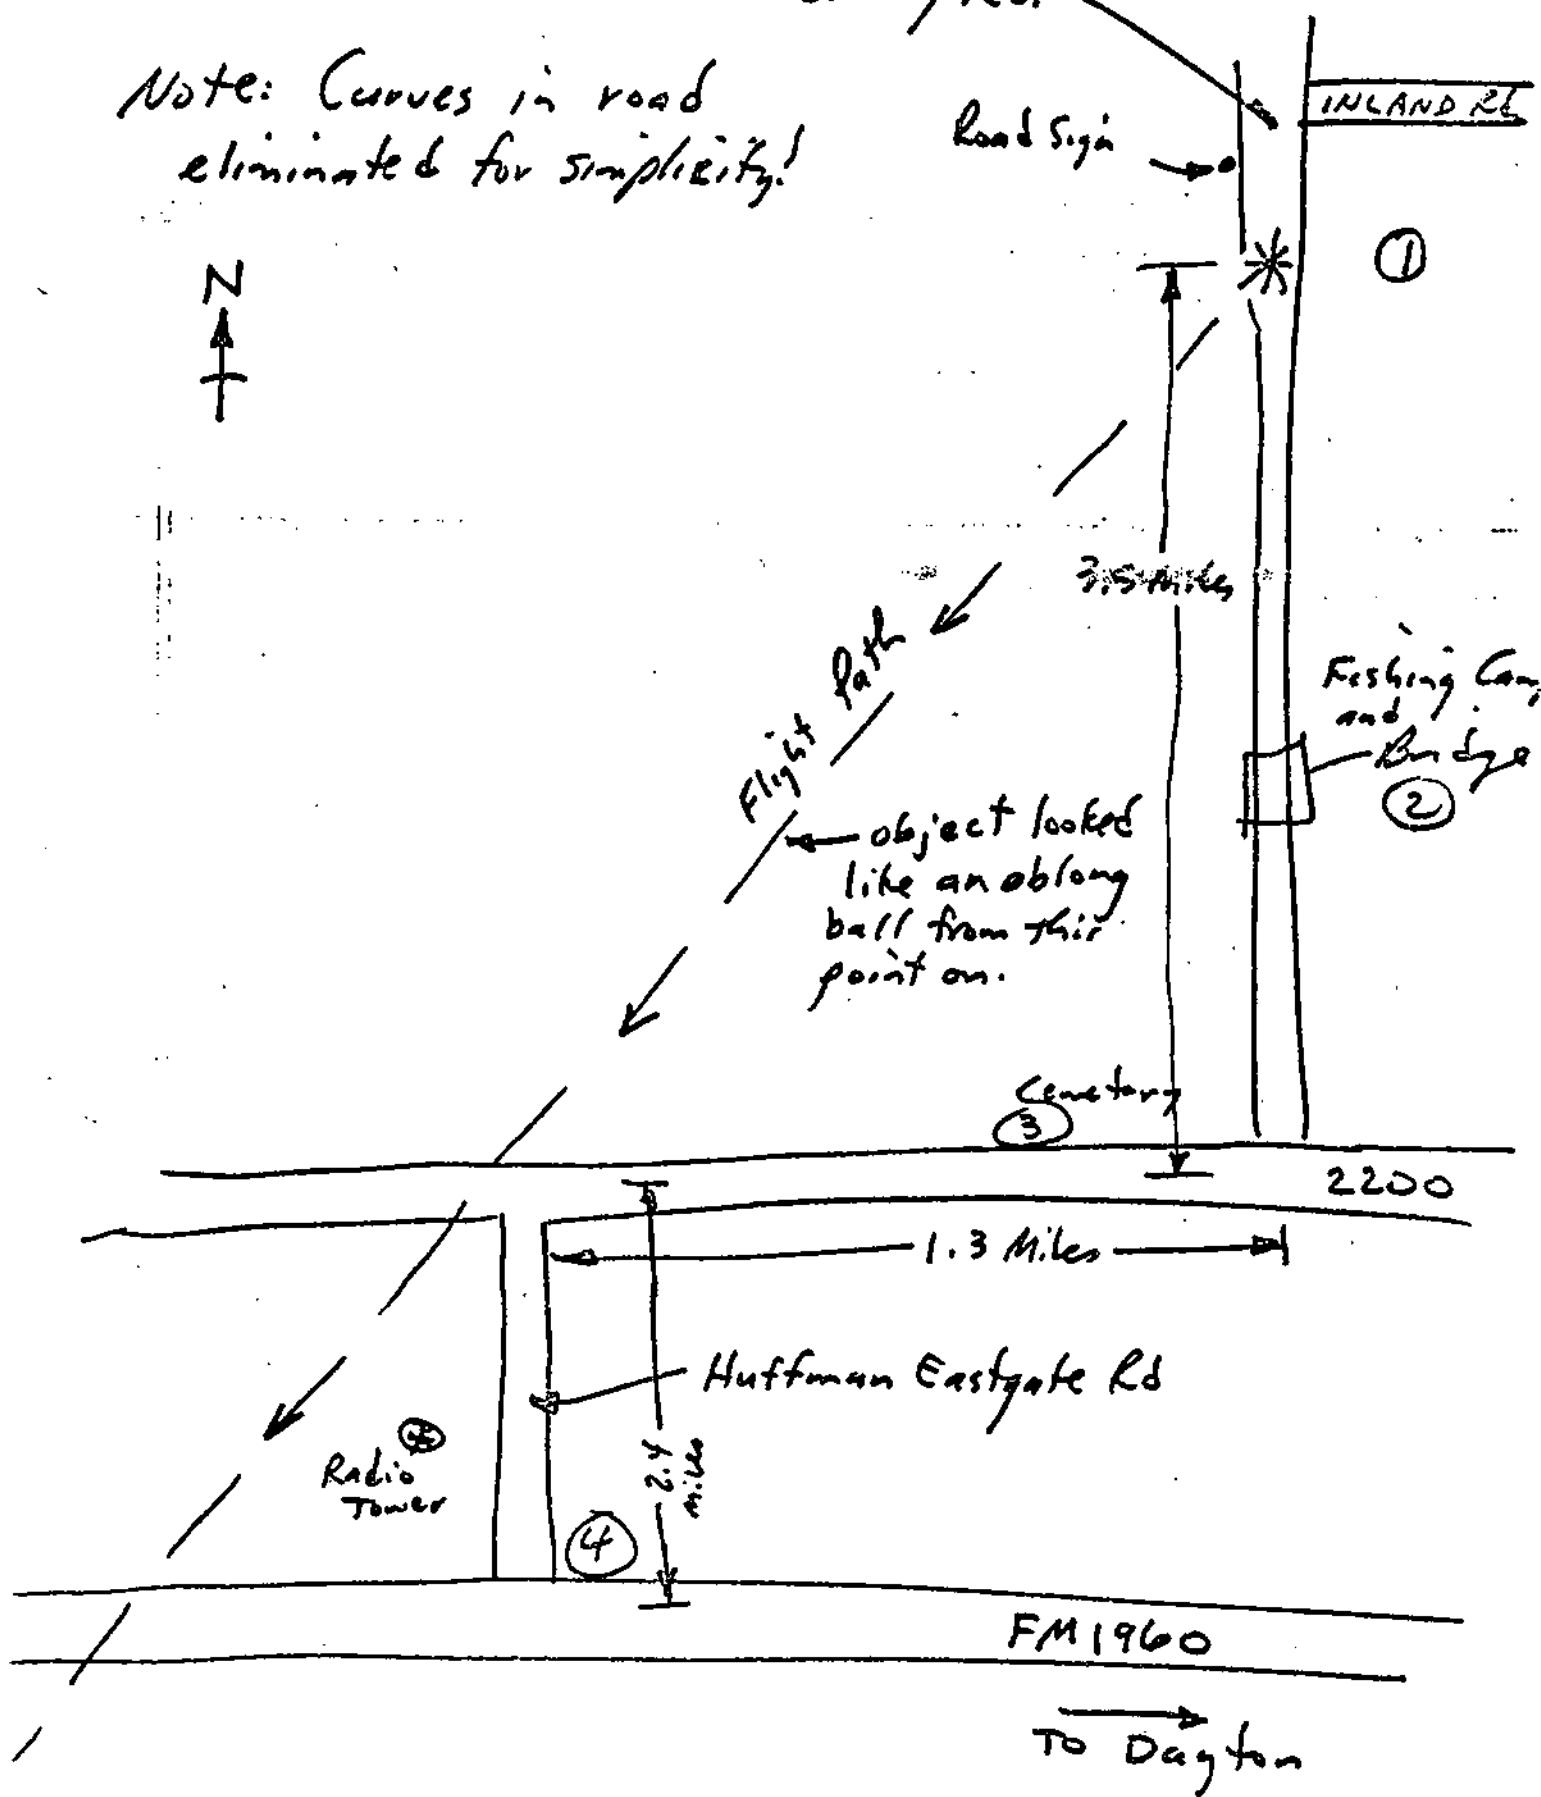 Rd.
Note: Curves in road
eliminated for simplicity!
INLAND Rd
Road Sign
N
①
3.5 miles
Flight Path
Fishing Cam
and
Bridge
②
object looked
like an oblong
ball from this
point on.
Cemetary
③
2200
1.3 Miles
Huffman Eastgate Rd
2.4
miles
Radio
Tower
④
FM 1960
To Dayton